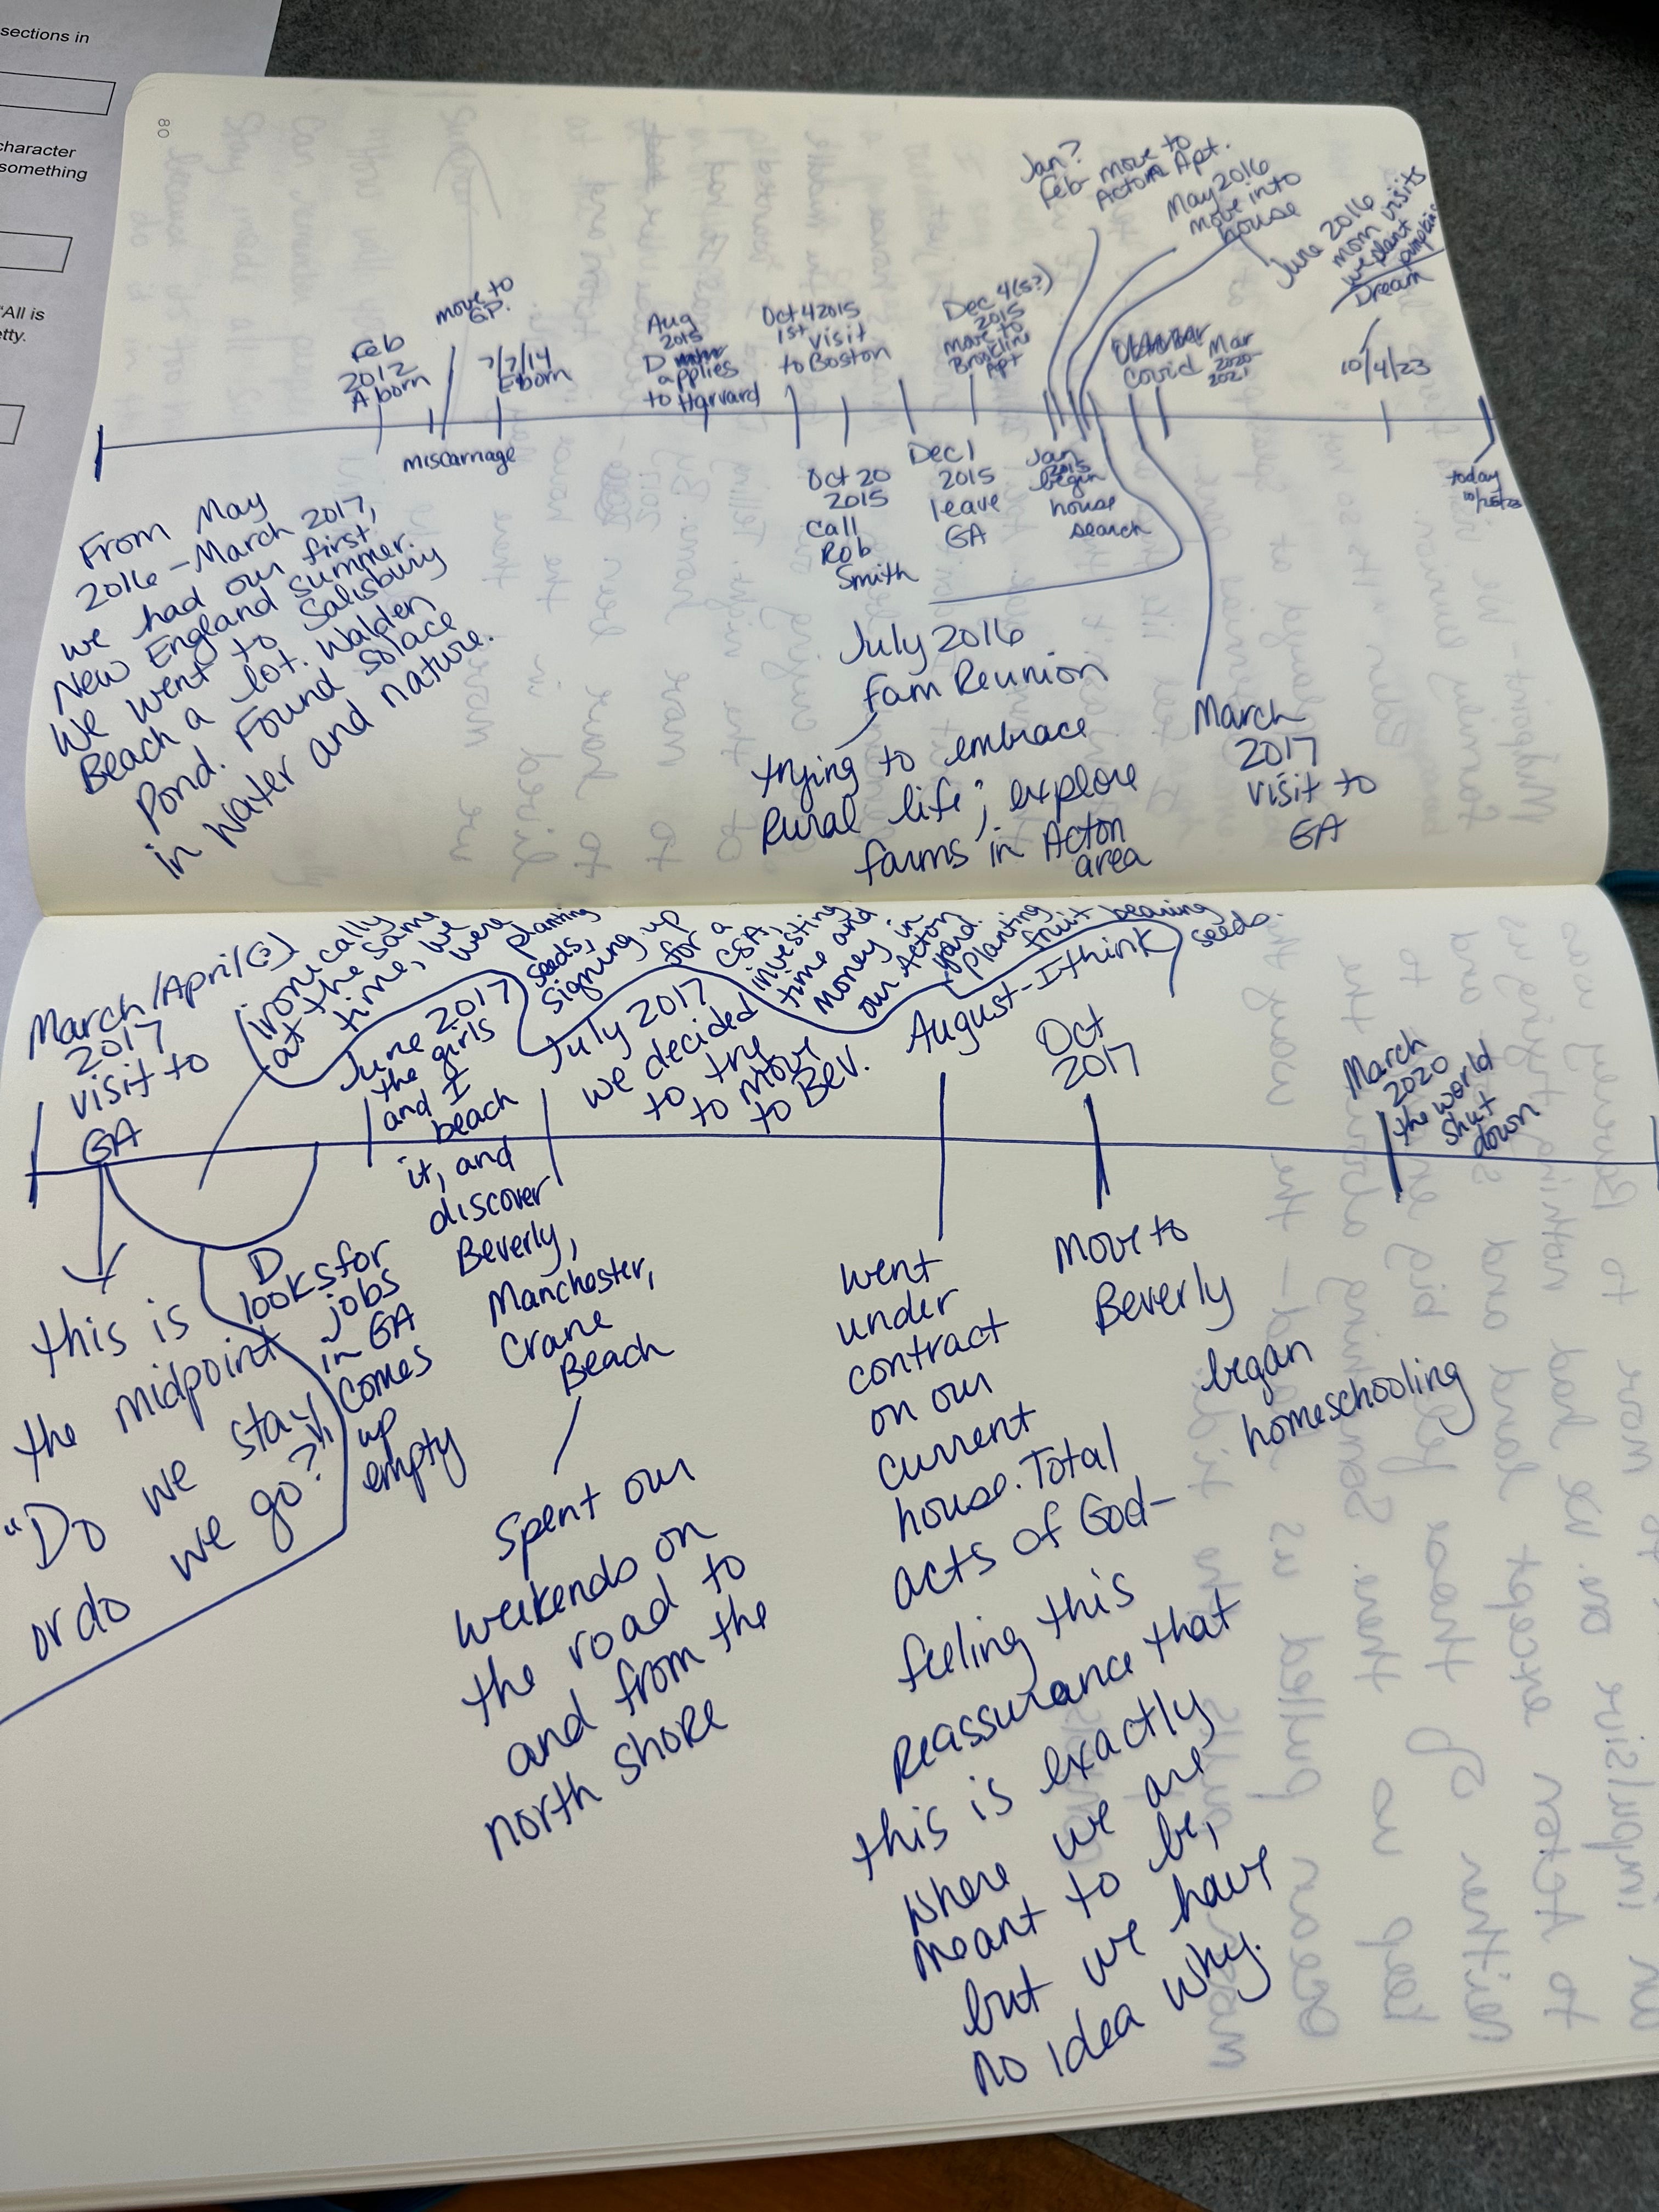 sections in
character
something
"All is
etty.
80
Feb
2012
A born
move to
GP.
7/7/14
E born
Aug
2015
D
applies
to Harvard
Oct 4 2015
1st visit
to Boston
Dec 4(5?)
2015
move to
Brookline
Apt
Jan?
Feb- move to
Acton Apt.
May 2016
move into
house
June 2016
mom visits
we plant
pumpkins
Dream
Covid Mar
2020-
2021
10/4/23
miscarriage
Oct 20
2015
Call
Rob
Smith
Dec 1
2015
leave
GA
Jan
2015
begin
house
search
today
From May
2016 - March 2017,
we had our first
New England summer.
We went to Salisbury
Beach a lot. Walden
Pond. Found solace
in water and nature.
July 2016
Fam Reunion
trying to embrace
Rural life; explore
farms in Acton
area
March
2017
visit to
GA
March/April(?)
2017
visit to
GA
ironically
at the same
time, we
were
planting
seeds,
signing up
for a
CSA,
investing
time and
money in
our Acton
yard.
planting
fruit bearing
seeds.
June 2017
the girls
and I
beach
it, and
discover
Beverly,
Manchester,
Crane
Beach
July 2017
we decided
to try
to move
to Bev.
August - I think
Oct
2017
March
2020
the world
shut
down
this is
the midpoint
"Do we stay,
or do we go?"
D
looks for
jobs
in GA
comes
up
empty
Spent our
weekends on
the road to
and from the
north shore
went
under
contract
on our
current
house. Total
acts of God-
feeling this
Reassurance that
this is exactly
where we are
meant to be,
but we have
no idea why.
Move to
Beverly
began
homeschooling